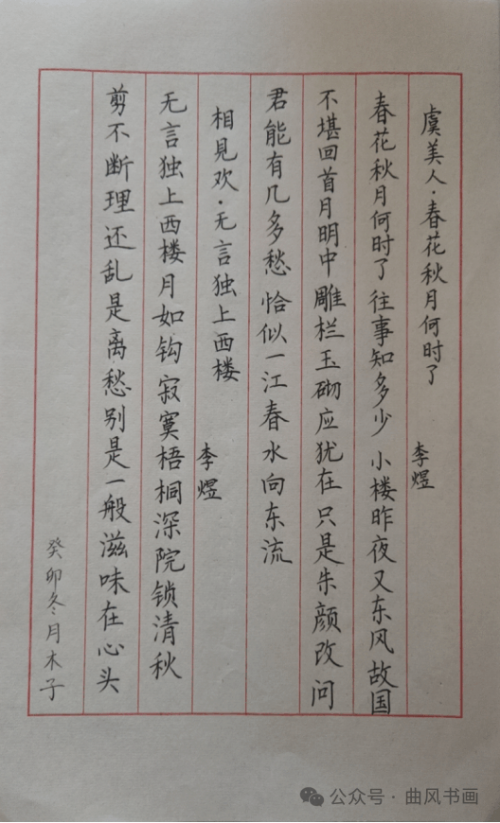 虞美人·春花秋月何时了
李煜
春花秋月何时了往事知多少小楼昨夜又东风故国
不堪回首月明中雕栏玉砌应犹在只是朱颜改问
君能有几多愁恰似一江春水向东流
相見欢·无言独上西楼
李煜
无言独上西楼月如钩寂寞梧桐深院锁清秋
剪不断理还乱是离愁别是一般滋味在心头
癸卯冬月木子
公众号·曲风书画